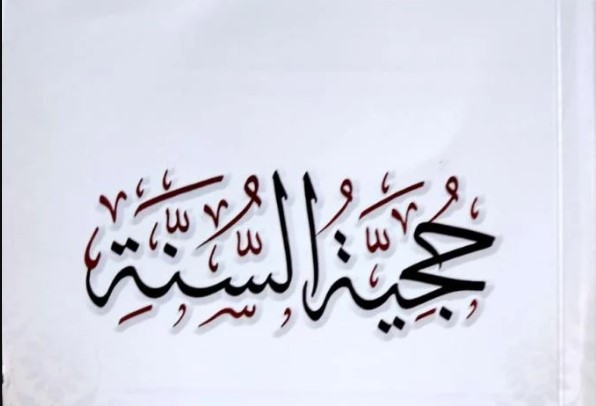 حُجِّيَّةُ السُّنَّةِ